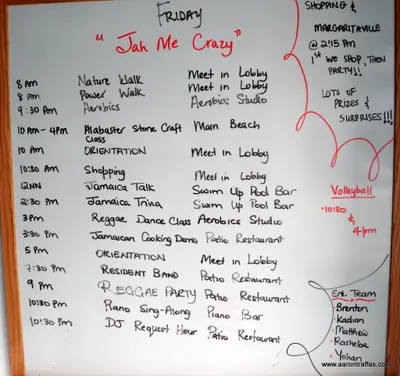 FRIDAY
"Jah Me Crazy"
8 am Nature Walk Meet in Lobby
8 am Power Walk Meet in Lobby
9:30 am Aerobics Aerobics Studio
10 am - 4pm Alabaster Stone Craft Main Beach
Class
10 am ORIENTATION Meet in Lobby
10:30 am Shopping Meet in Lobby
12NN Jamaica Talk Swim Up Pool Bar
2:30 pm Jamaica Trivia Swim Up Pool Bar
3pm Reggae Dance Class Aerobics Studio
3:30 pm Jamaican Cooking Demo Patio Restaurant
5 pm ORIENTATION Meet in Lobby
7:30 pm RESIDENT BAND Patio Restaurant
9 pm REGGAE PARTY Patio Restaurant
10:30 pm Piano Sing-Along Piano Bar
10:30 pm DJ Request Hour Patio Restaurant
SHOPPING &
MARGARITAVILLE
@ 2:15 PM
1st WE SHOP, THEN
PARTY!!
LOTS OF
PRIZES &
SURPRISES!!!
Volleyball
•10:30
&
4pm
Ent. Team
•Brenton
•Kadion
•Matthew
•Kasheba
•Yohan
© www.aarontraffas.com